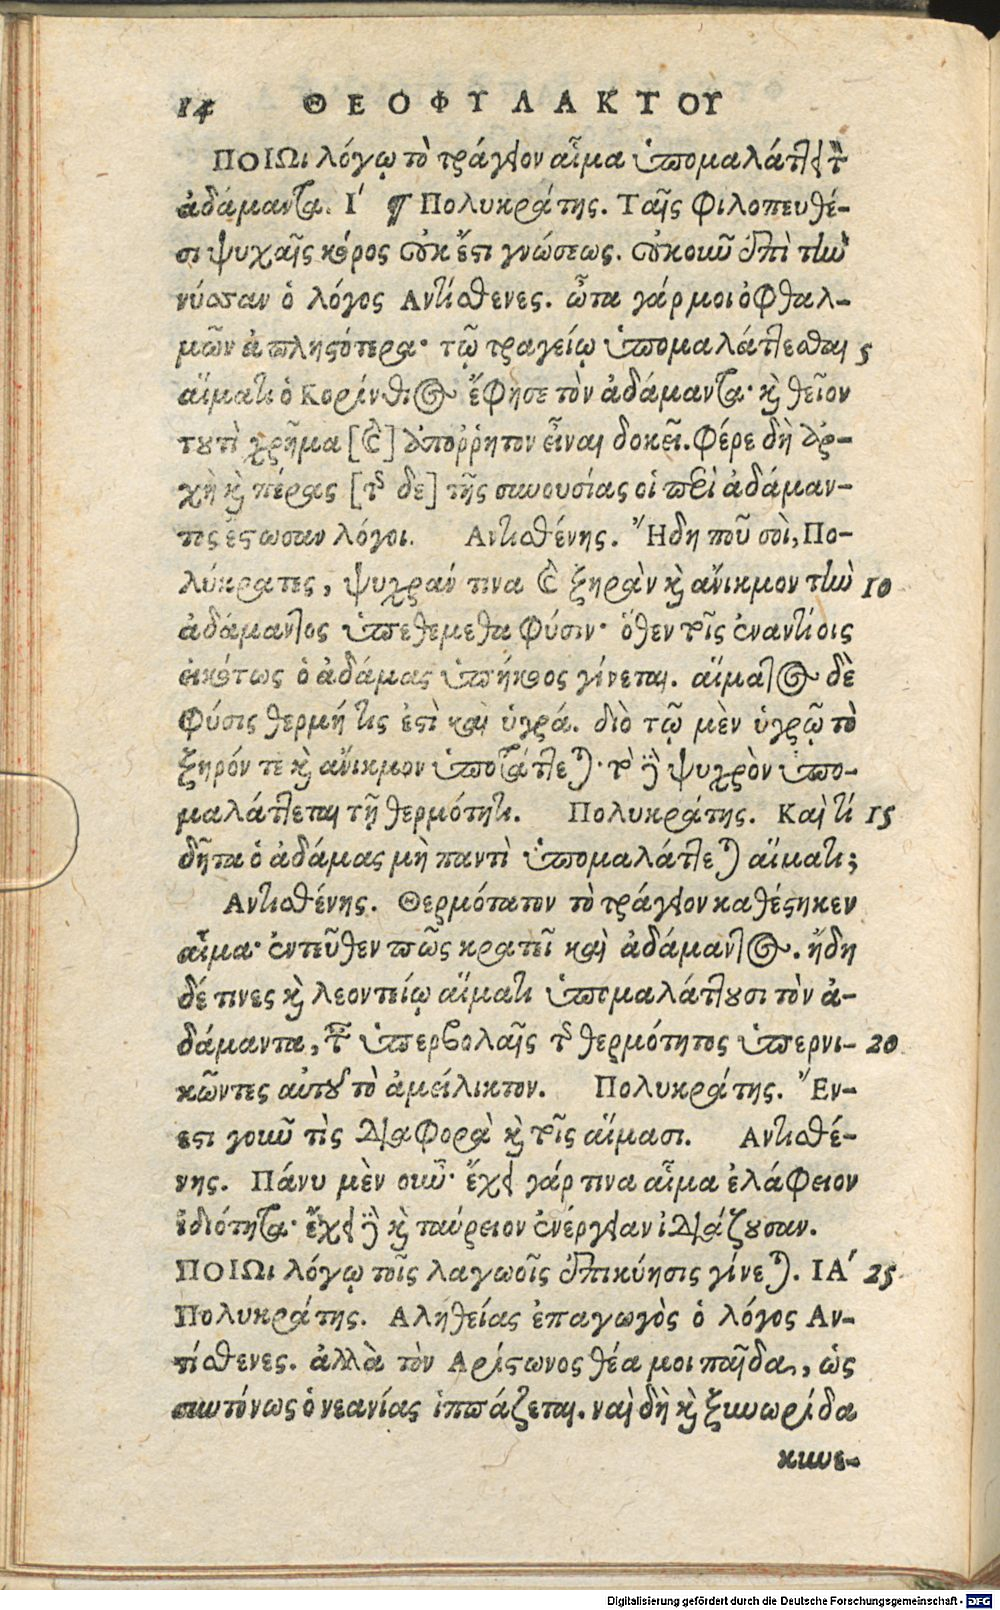 14 ΘΕΟΦΥΛΑΚΤΟΥ
ΠΟΙΩι λόγῳ τὸ τράγειον αἷμα ὑπομαλάττει τὸν
ἀδάμαντα. Ι΄ ¶ Πολυκράτης. Ταῖς φιλοπευθέ-
σι ψυχαῖς κόρος οὐκ ἔστι γνώσεως. οὐκοῦν ἐπὶ τὴν
νύσσαν ὁ λόγος Αντίσθενες. ὦτα γάρ μοι ὀφθαλ-
μῶν ἀπληστότερα· τῷ τραγείῳ ὑπομαλάττεσθαι 5
αἵματι ὁ Κορίνθιος ἔφησε τὸν ἀδάμαντα· καὶ θεῖον
τουτὶ χρῆμα [καὶ] ἀπόῤῥητον εἶναι δοκεῖ. Φέρε δὴ ἀρ-
χὴ καὶ πέρας [τῆς δε] τῆς συνουσίας οἱ περὶ ἀδάμαν-
τος ἔστωσαν λόγοι. Αντισθένης. Ἤδη ποῦ σοὶ, Πο-
λύκρατες, ψυχράν τινα καὶ ξηρὰν καὶ ἄνικμον τὴν 10
ἀδάμαντος ὑπεθέμεθα φύσιν· ὅθεν τοῖς ἐναντίοις
εἰκότως ὁ ἀδάμας ὑπήκοος γίνεται. αἵματος δὲ
φύσις θερμή τις ἐστὶ καὶ ὑγρά. διὸ τῷ μὲν ὑγρῷ τὸ
ξηρόν τε καὶ ἄνικμον ὑποτάττεται· τὸ δὲ ψυχρὸν ὑπο-
μαλάττεται τῇ θερμότητι. Πολυκράτης. Καὶ τί 15
δῆτα ὁ ἀδάμας μὴ παντὶ ὑπομαλάττεται αἵματι;
Αντισθένης. Θερμότατον τὸ τράγειον καθέστηκεν
αἷμα· ἐντεῦθεν πῶς κρατεῖ καὶ ἀδάμαντος. ἤδη
δέ τινες καὶ λεοντείῳ αἵματι ὑπομαλάττουσι τὸν ἀ-
δάμαντα, ταῖς ὑπερβολαῖς τῆς θερμότητος ὑπερνι- 20
κῶντες αὐτοῦ τὸ ἀμείλικτον. Πολυκράτης. Ἔν-
εστι γοῦν τὶς διαφορὰ καὶ τοῖς αἵμασι. Αντισθέ-
νης. Πάνυ μὲν οὖν· ἔχει γάρ τινα αἷμα ἐλάφειον
ἰδιότητα· ἔχει δὲ καὶ ταύρειον ἐνέργειαν ἰδιάζουσαν.
ΠΟΙΩι λόγῳ τοῖς λαγωοῖς ἐπικύησις γίνεται. ΙΑ΄ 25
Πολυκράτης. Αληθείας ἐπαγωγὸς ὁ λόγος Αν-
τίσθενες. ἀλλὰ τὸν Αρίστωνος θέα μοι παῖδα, ὡς
συντόνως ὁ νεανίας ἱππάζεται. ναὶ δὴ καὶ ξυνωρίδα
κυνε-
Digitalisierung gefördert durch die Deutsche Forschungsgemeinschaft - DFG